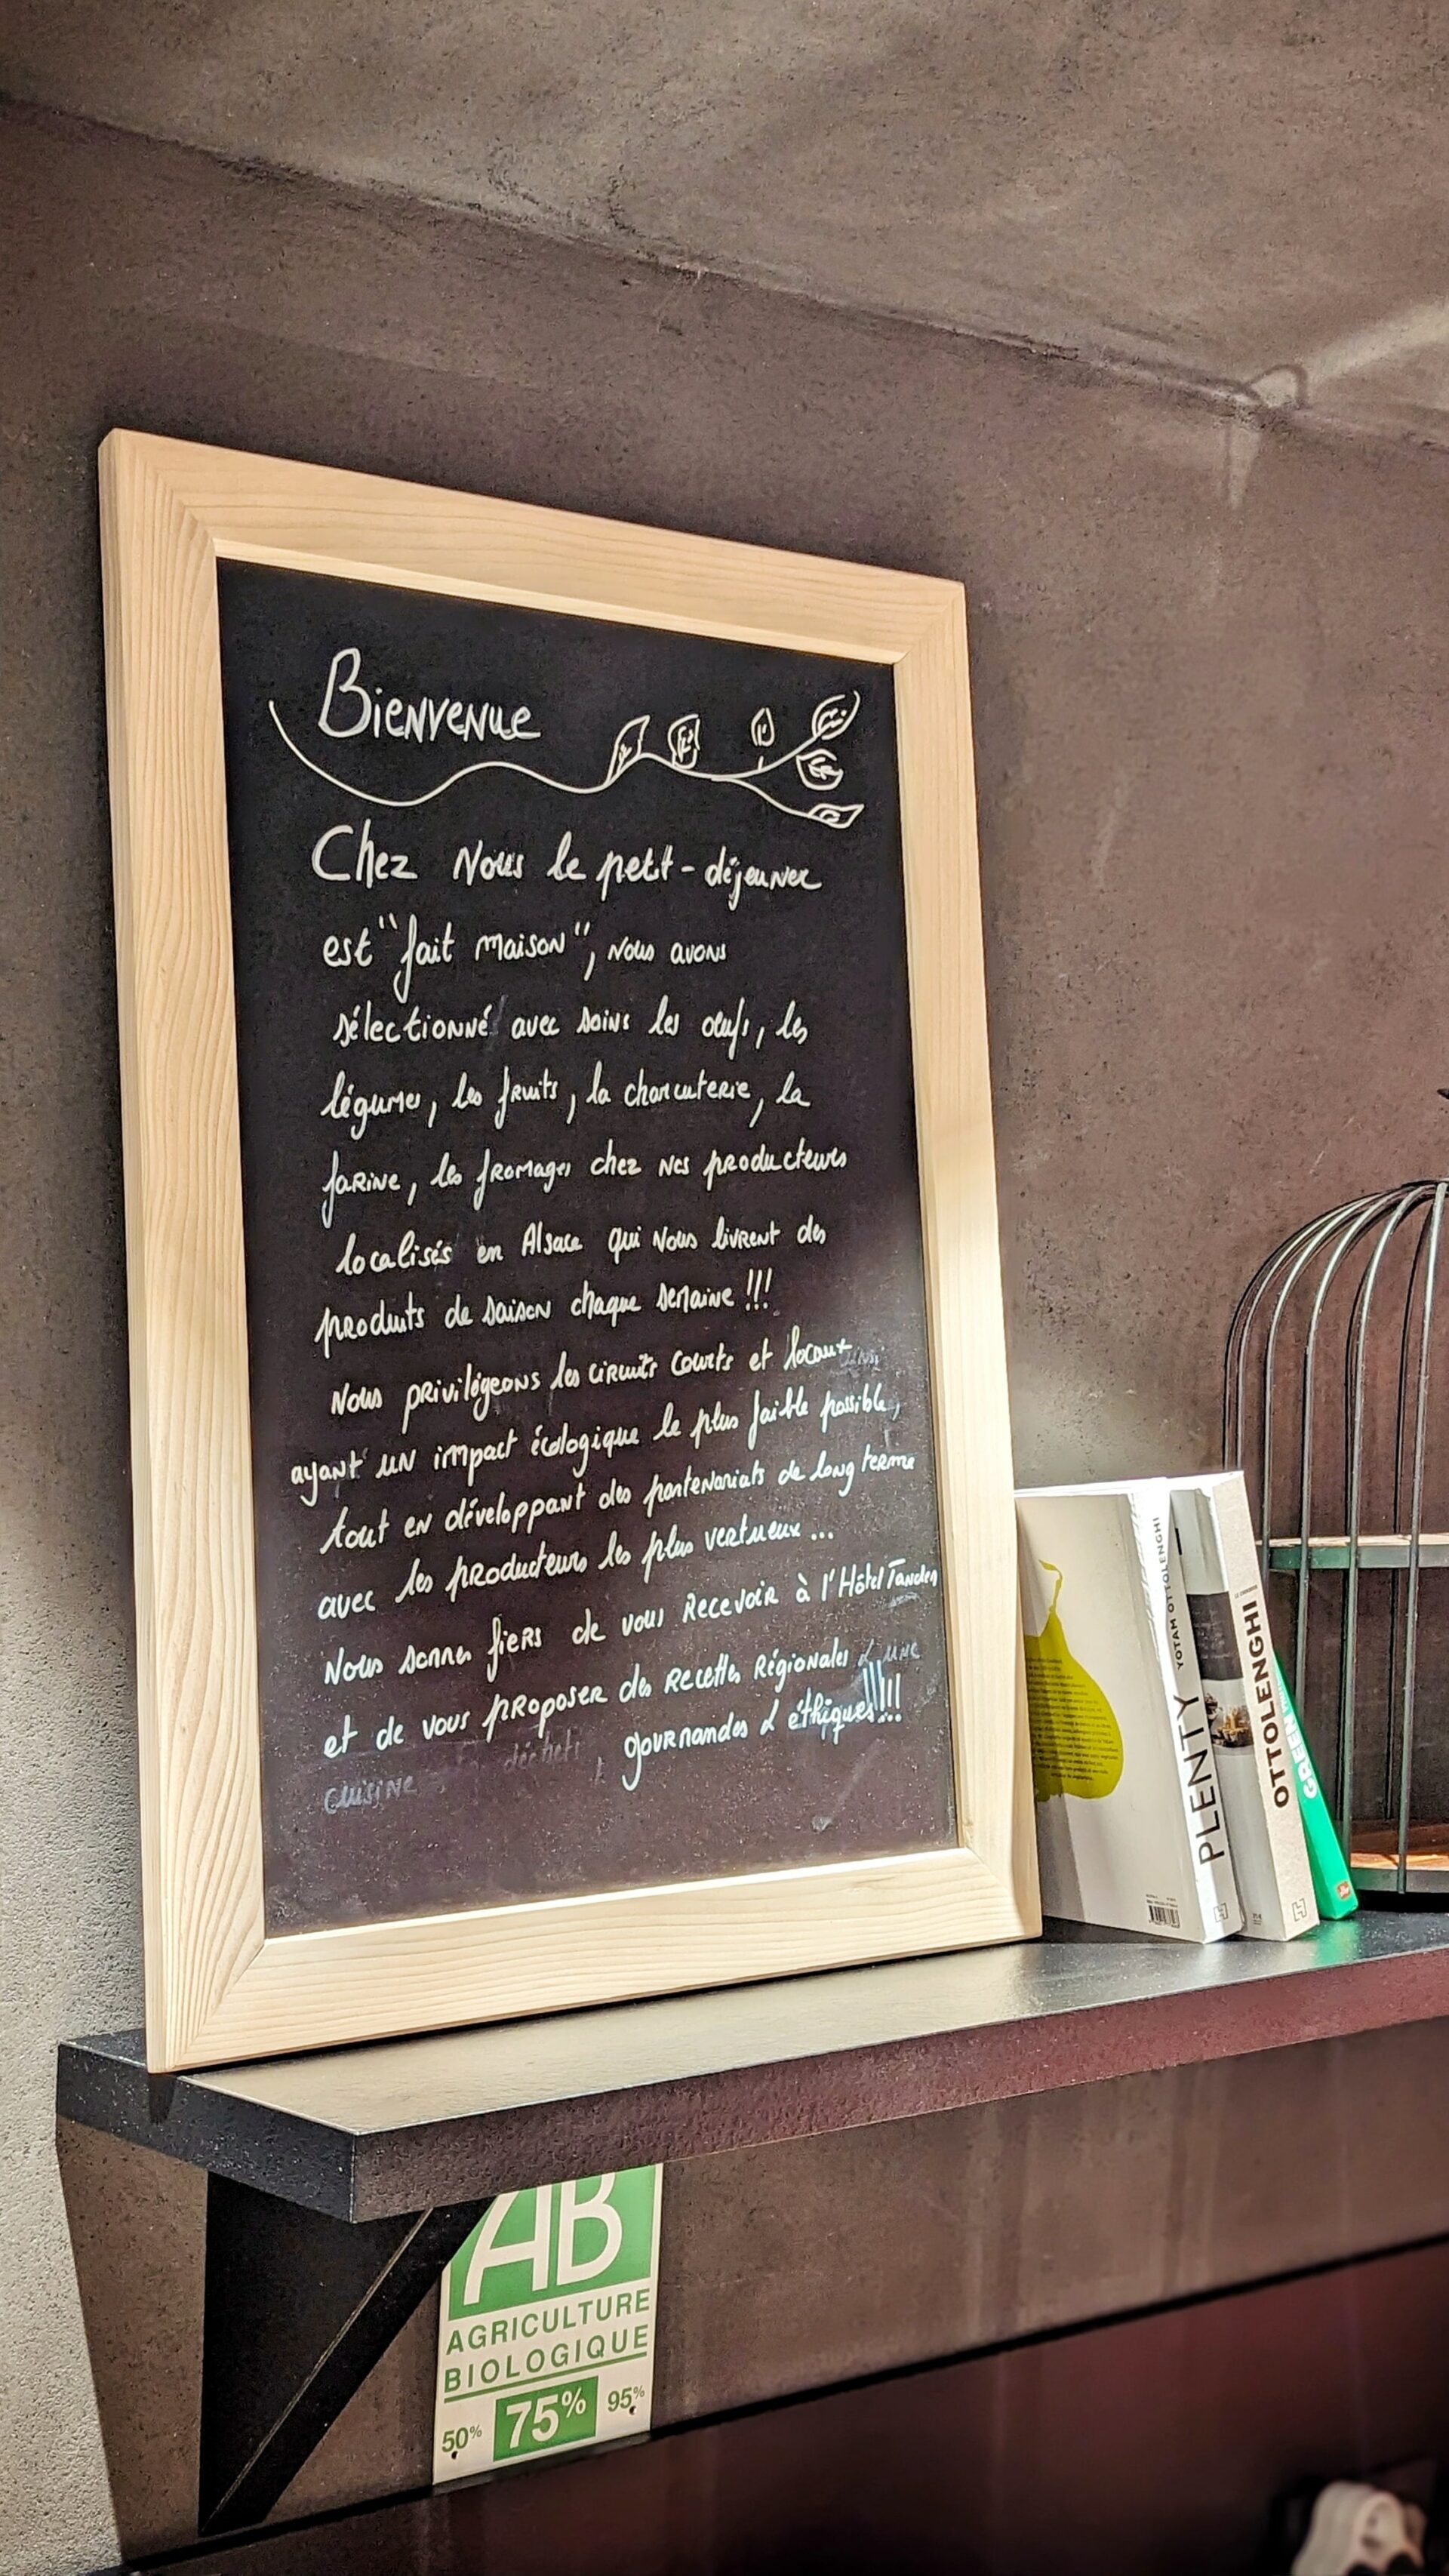 Bienvenue
Chez Nous le petit-déjeuner
est "fait maison", nous avons
sélectionné avec soins les œufs, les
légumes, les fruits, la charcuterie, la
farine, les fromages chez nos producteurs
localisés en Alsace qui nous livrent des
produits de saison chaque semaine !!!
Nous privilégeons les circuits courts et locaux
ayant un impact écologique le plus faible possible,
tout en développant des partenariats de long terme
avec les producteurs les plus vertueux ...
Nous sommes fiers de vous recevoir à l'Hôtel Tandem
et de vous proposer des recettes Régionales & une
cuisine déchets gourmandes & éthiques!!!!
PLENTY YOTAM OTTOLENGHI
OTTOLENGHI
GREEN
AB
AGRICULTURE
BIOLOGIQUE
50% 75% 95%